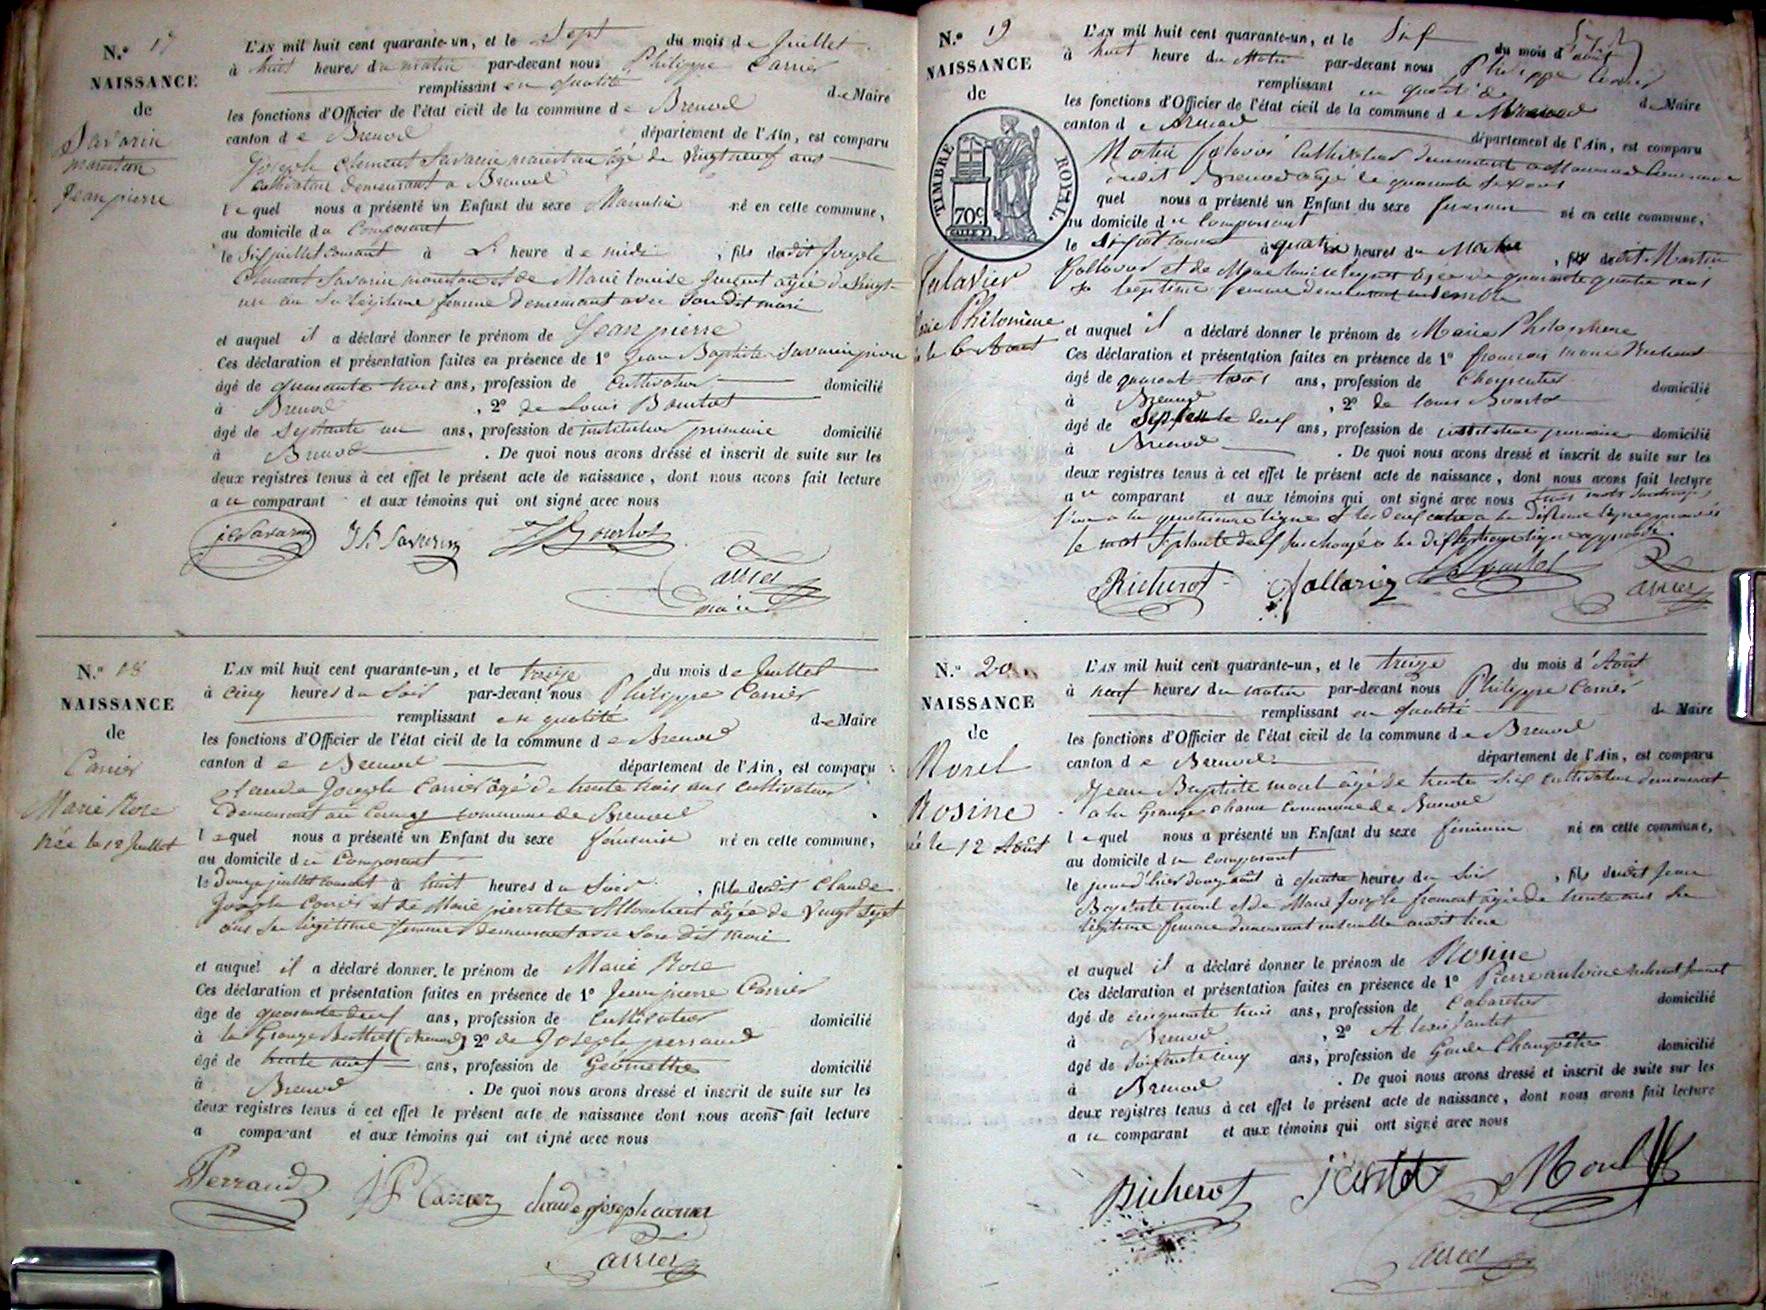 N.° 17
NAISSANCE
de
Savarin
Jean pierre
L'AN mil huit cent quarante-un, et le Sept du mois de Juillet
à huit heures du matin par-devant nous Philippe Carrier
remplissant en qualité de Maire
les fonctions d'Officier de l'état civil de la commune de Brenod
canton de Brenod département de l'Ain, est comparu
Joseph Clément Savarin âgé de vingt neuf ans
cultivateur demeurant a Brenod
lequel nous a présenté un Enfant du sexe Masculin né en cette commune,
au domicile du Comparant
le Six juillet courant à heure de midi, fils dudit Joseph
Clément Savarin et de Marie Louise agée de vingt
un an Sa légitime femme Demeurant avec Son dit mari
et auquel il a déclaré donner le prénom de Jean pierre
Ces déclaration et présentation faites en présence de 1° Jean Baptiste Savarin
âgé de quarante trois ans, profession de Cultivateur domicilié
à Brenod, 2° de Louis Bourlot
âgé de Septante un ans, profession de instituteur primaire domicilié
à Brenod. De quoi nous avons dressé et inscrit de suite sur les
deux registres tenus à cet effet le présent acte de naissance, dont nous avons fait lecture
au comparant et aux témoins qui ont signé avec nous
jc Savarin J B Savarin Bourlot
Carrier
maire
N.° 18
NAISSANCE
de
Carrier
Marie Rose
Née le 12 Juillet
L'AN mil huit cent quarante-un, et le treize du mois de Juillet
à cinq heures du Soir par-devant nous Philippe Carrier
remplissant en qualité de Maire
les fonctions d'Officier de l'état civil de la commune de Brenod
canton de Brenod département de l'Ain, est comparu
Claude Joseph Carrier âgé de trente trois ans cultivateur
demeurant au commune de Brenod
lequel nous a présenté un Enfant du sexe féminin né en cette commune,
au domicile du Comparant
le Douze juillet courant à huit heures du Soir, fille dudit Claude
Joseph Carrier et de Marie pierrette agée de vingt Sept
ans Sa légitime femme demeurant avec Son Dit mari
et auquel il a déclaré donner le prénom de Marie Rose
Ces déclaration et présentation faites en présence de 1° Jean pierre Carrier
âge de quarante deux ans, profession de Cultivateur domicilié
à la Grange (Brenod) 2° de Joseph perraud
âgé de trente neuf ans, profession de Géomettre domicilié
à Brenod. De quoi nous avons dressé et inscrit de suite sur les
deux registres tenus à cet effet le présent acte de naissance dont nous avons fait lecture
a comparant et aux témoins qui ont signé avec nous
Perraud J P Carrier claude joseph carrier
Carrier
N.° 19
NAISSANCE
de
TIMBRE ROYAL.
70c
Philomène
le 6 Août
L'AN mil huit cent quarante-un, et le Six du mois d'août
à huit heure du Matin par-devant nous Philippe Carrier
remplissant en qualité de Maire
les fonctions d'Officier de l'état civil de la commune de Brenod
canton de Brenod département de l'Ain, est comparu
cultivateur demeurant
Brenod âgé de quarante Six ans
quel nous a présenté un Enfant du sexe féminin né en cette commune,
au domicile du Comparant
le Six août courant à quatre heures du Matin, dudit Martin
et de Marie Louise agée de quarante quatre ans
Sa légitime femme demeurant ensemble
et auquel il a déclaré donner le prénom de Marie Philomène
Ces déclaration et présentation faites en présence de 1° francois marie Richerot
âgé de quarant trois ans, profession de Charpentier domicilié
à Brenod, 2° de louis Bourlot
âgé de Septante deux ans, profession de instituteur primaire domicilié
à Brenod. De quoi nous avons dressé et inscrit de suite sur les
deux registres tenus à cet effet le présent acte de naissance, dont nous avons fait lecture
au comparant et aux témoins qui ont signé avec nous trois mots
ligne et les deux a la Dixieme ligne
le mot Septante deux Surchargé a la Dix Septieme ligne approuvé
Richerot Bourlot Carrier
N.° 20
NAISSANCE
de
Morel
Rosine
né le 12 Août
L'AN mil huit cent quarante-un, et le treize du mois d'Août
à neuf heures du matin par-devant nous Philippe Carrier
remplissant en qualité de Maire
les fonctions d'Officier de l'état civil de la commune de Brenod
canton de Brenod département de l'Ain, est comparu
Jean Baptiste morel âgé de trente Six cultivateur demeurant
a la Grange commune de Brenod
lequel nous a présenté un Enfant du sexe féminin né en cette commune,
au domicile du comparant
le jour d'hier douze août à quatre heures du Soir, fils dudit Jean
Baptiste morel et de Marie Josephe fromont agée de trente ans Sa
légitime femme demeurant ensemble audit lieu
et auquel il a déclaré donner le prénom de Rosine
Ces déclaration et présentation faites en présence de 1° Pierre antoine Richerot
âgé de cinquante trois ans, profession de Cabaretier domicilié
à Brenod, 2° Alexis Jantet
âgé de Soixante cinq ans, profession de Garde Champêtre domicilié
à Brenod. De quoi nous avons dressé et inscrit de suite sur les
deux registres tenus à cet effet le présent acte de naissance, dont nous avons fait lecture
au comparant et aux témoins qui ont signé avec nous
Richerot jantet Morel
Carrier